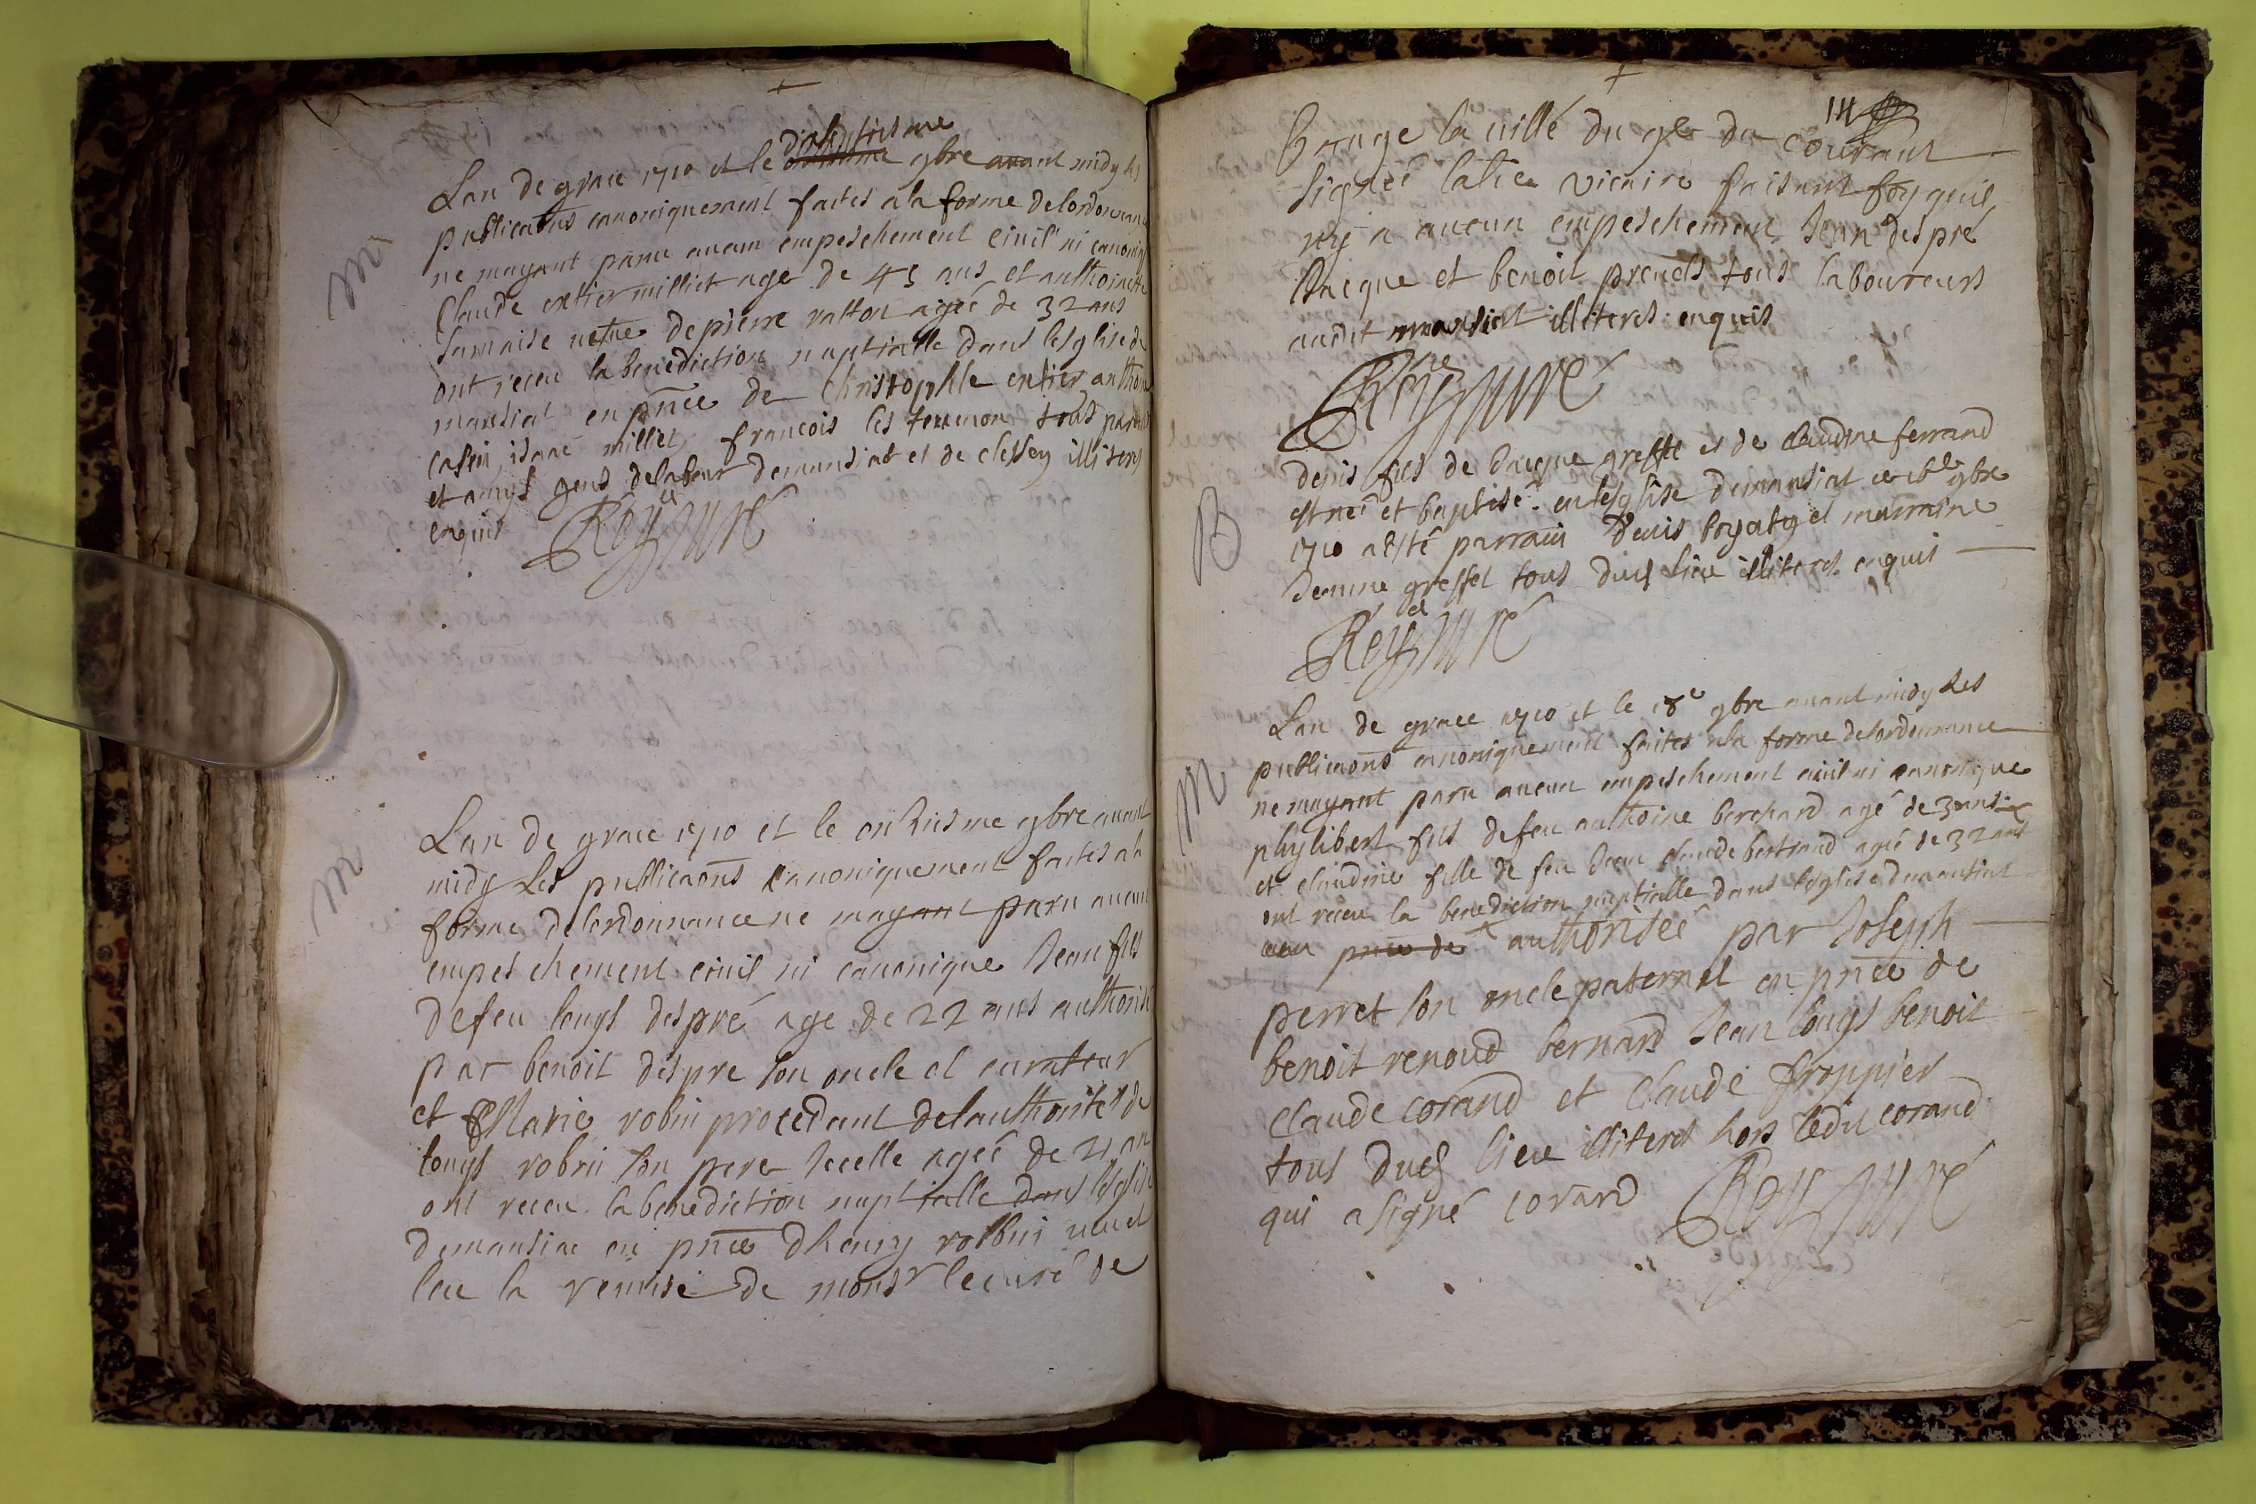 Lan de grace 1710 et le dixhuitiesme 9bre avant midy les
publicaons canoniquement faites a la forme delordonnance
ne mayant paru aucun empeschement civil ni canoniq
Claude extier milliet age de 45 ans et anthoinette
Samaise vefve de pierre ratton agée de 32 ans
ont receu la benediction nuptialle dans leglise de
mansiat en pñce de Christophle extier anthoi
casin isaac millet francois les terrenon tous parents
et amys gens delabeur demansiat et de clessey illiteres
enquis Rey curé
M
Lan de grace 1710 et le onziesme 9bre avant
midy Les publicaons canoniquement faites ala
forme delordonnance ne mayant paru aucun
empeschement civil ni canonique Jean fils
defeu louys despré age de 22 ans authorisé
par benoit despre son oncle et curateur
et Marie robin procedant delauthorité de
louys robin son pere Icelle agée de 21 an
ont receu la benediction nuptialle dans leglise
demansiat en pñce dhenry robin veu et
leu la remise de monsr lecuré de
M
114
Bauge la ville du 9e du courant
signée vicaire faisant foy quil
ny a aucun empeschement Jean despré
Jacque et benoit tous laboureurs
audit mansiat illiteres enquis
Rey curé
B
denis fils de Jacque greffet et de claudine ferrand
est né et baptisé en leglise demansiat ce 16e 9bre
1710 a esté parrain denis et marraine
Jeanne greffet tous dud lieu illiteres enquis
Rey curé
M
Lan de grace 1710 et le 18e 9bre avant midy Les
publicaons canoniquement faites ala forme delordonnance
ne mayant paru aucun empeschement civil ni canonique
phylibert fils defeu anthoine berchard agé de
et claudine fille de feu Jean claude bertrand agée de 32 ans
ont receu la benediction nuptialle dans leglise demansiat
en pñce de authorisée par Joseph
perret son oncle paternel en pñce de
benoit renoud bernard Jean louys benoit
Claude corand et Claude froppier
tous dud lieu illiteres hors ledit corand
qui a signé corand Rey curé